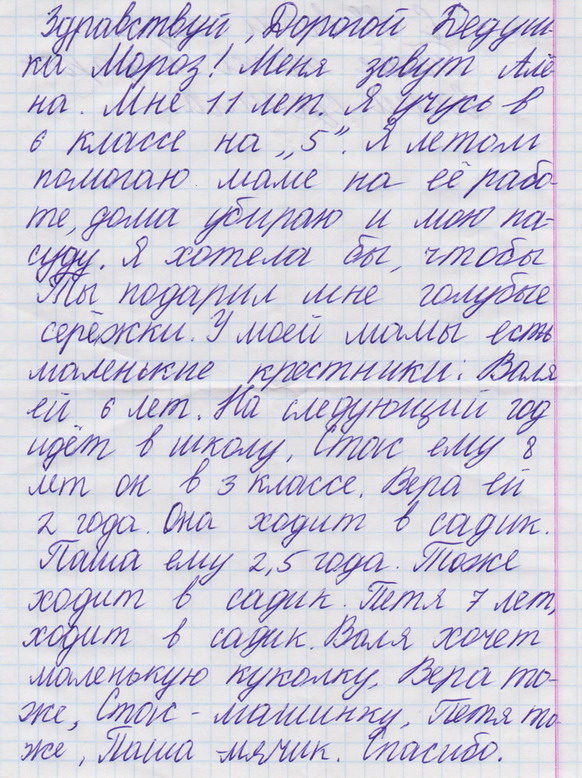 Здравствуй, Дорогой Дедуш-
ка Мороз! Меня зовут Алё-
на. Мне 11 лет. Я учусь в
6 классе на „5". Я летом
помогаю маме на её рабо-
те, дома убираю и мою па-
суду. Я хотела бы, чтобы
Ты подарил мне голубые
серёжки. У моей мамы есть
маленькие крестники: Валя
ей 6 лет. На следующий год
идёт в школу, Стас ему 8
лет он в 3 классе. Вера ей
2 года. Она ходит в садик.
Паша ему 2,5 года. Тоже
ходит в садик. Петя 7 лет,
ходит в садик. Валя хочет
маленькую куколку, Вера то-
же, Стас - машинку, Петя то-
же, Паша - мячик. Спасибо.